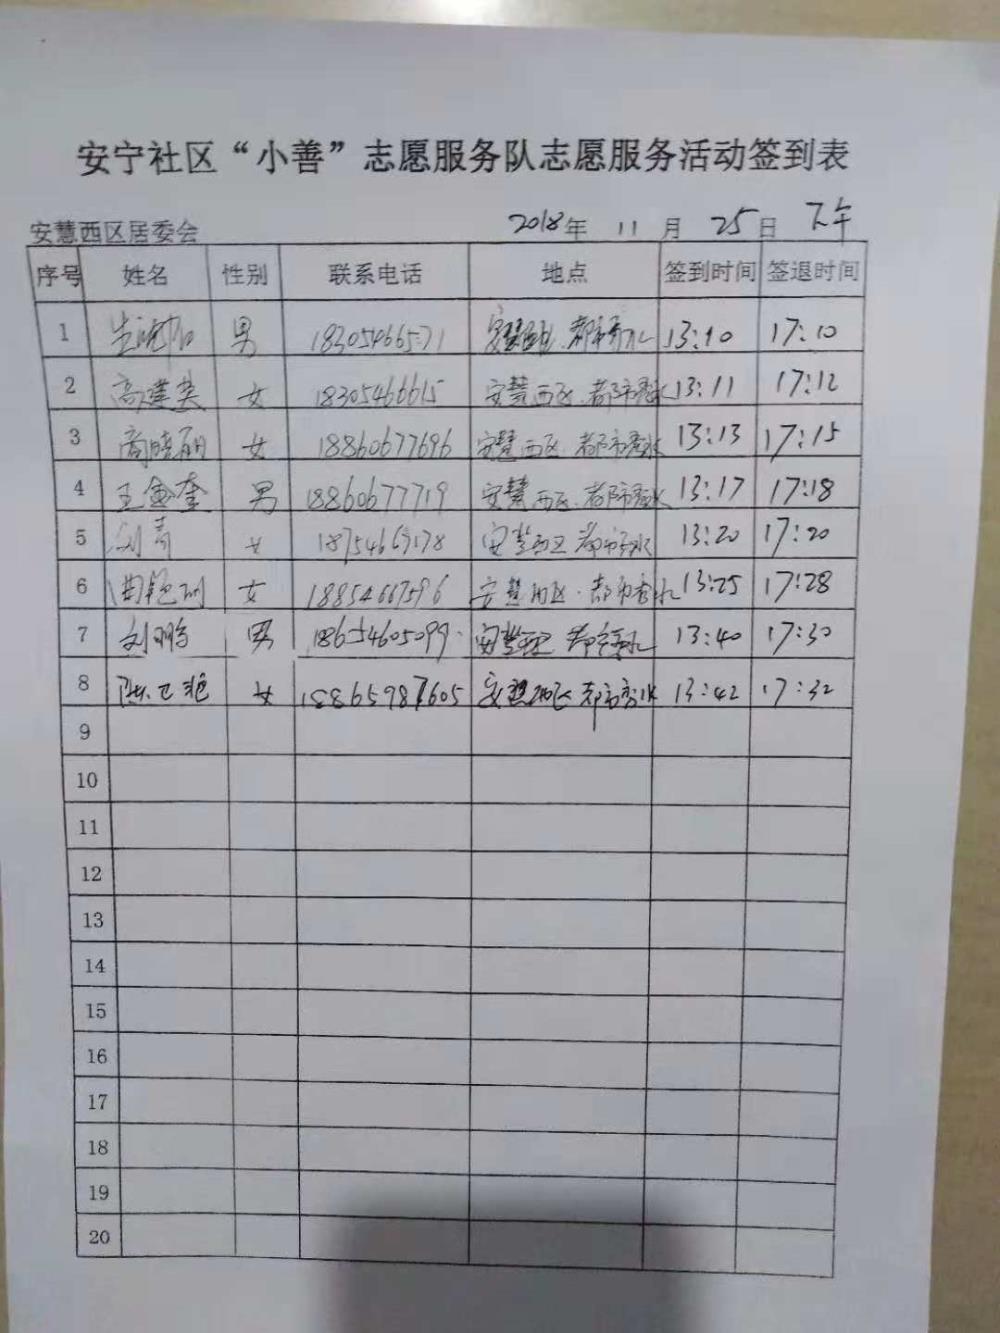 安宁社区“小善”志愿服务队志愿服务活动签到表
安慧西区居委会 2018年 11 月 25日 下午
序号 姓名 性别 联系电话 地点 签到时间 签退时间
1 男 18305466571 都市 13:10 17:10
2 高莲英 女 18305466615 安慧西区.都市秀水 13:11 17:12
3 商晓丽 女 18860677696 安慧西区.都市秀水 13:13 17:15
4 王金奎 男 18860677719 安慧西区.都市秀水 13:17 17:18
5 刘青 女 18754669178 安慧西区 都市秀水 13:20 17:20
6 女 18854667596 安慧西区.都市秀水 13:25 17:28
7 刘鹏 男 18654605099 安慧西区 都市秀水 13:40 17:30
8 陈卫艳 女 18865987605 安慧西区 都市秀水 13:42 17:32
9
10
11
12
13
14
15
16
17
18
19
20